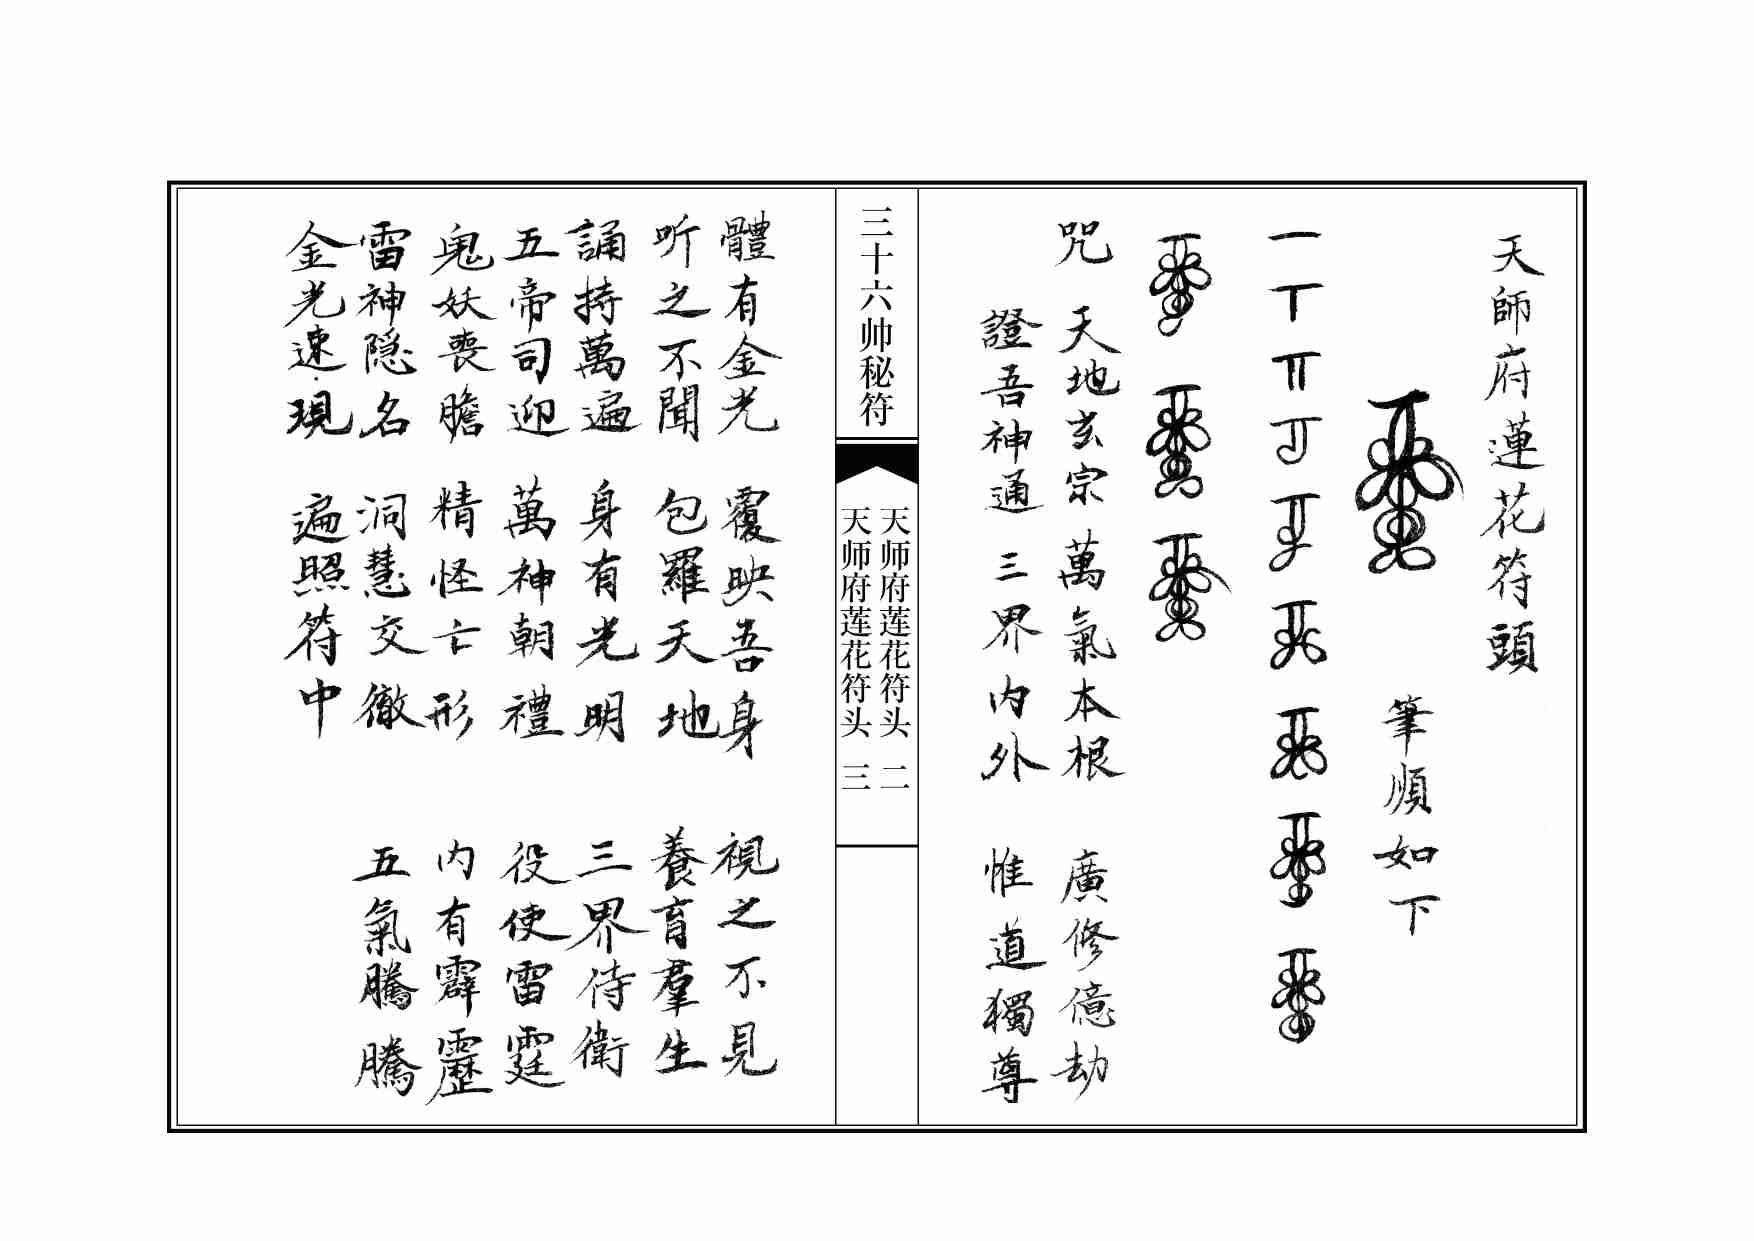 天師府蓮花符頭
筆順如下
咒 天地玄宗 萬氣本根 廣修億劫
證吾神通 三界內外 惟道獨尊
三十六帅秘符
天师府莲花符头 二
天师府莲花符头 三
體有金光 覆映吾身 視之不見
听之不聞 包羅天地 養育羣生
誦持萬遍 身有光明 三界侍衛
五帝司迎 萬神朝禮 役使雷霆
鬼妖喪膽 精怪亡形 內有霹靂
雷神隐名 洞慧交徹 五氣騰騰
金光速現 遍照符中